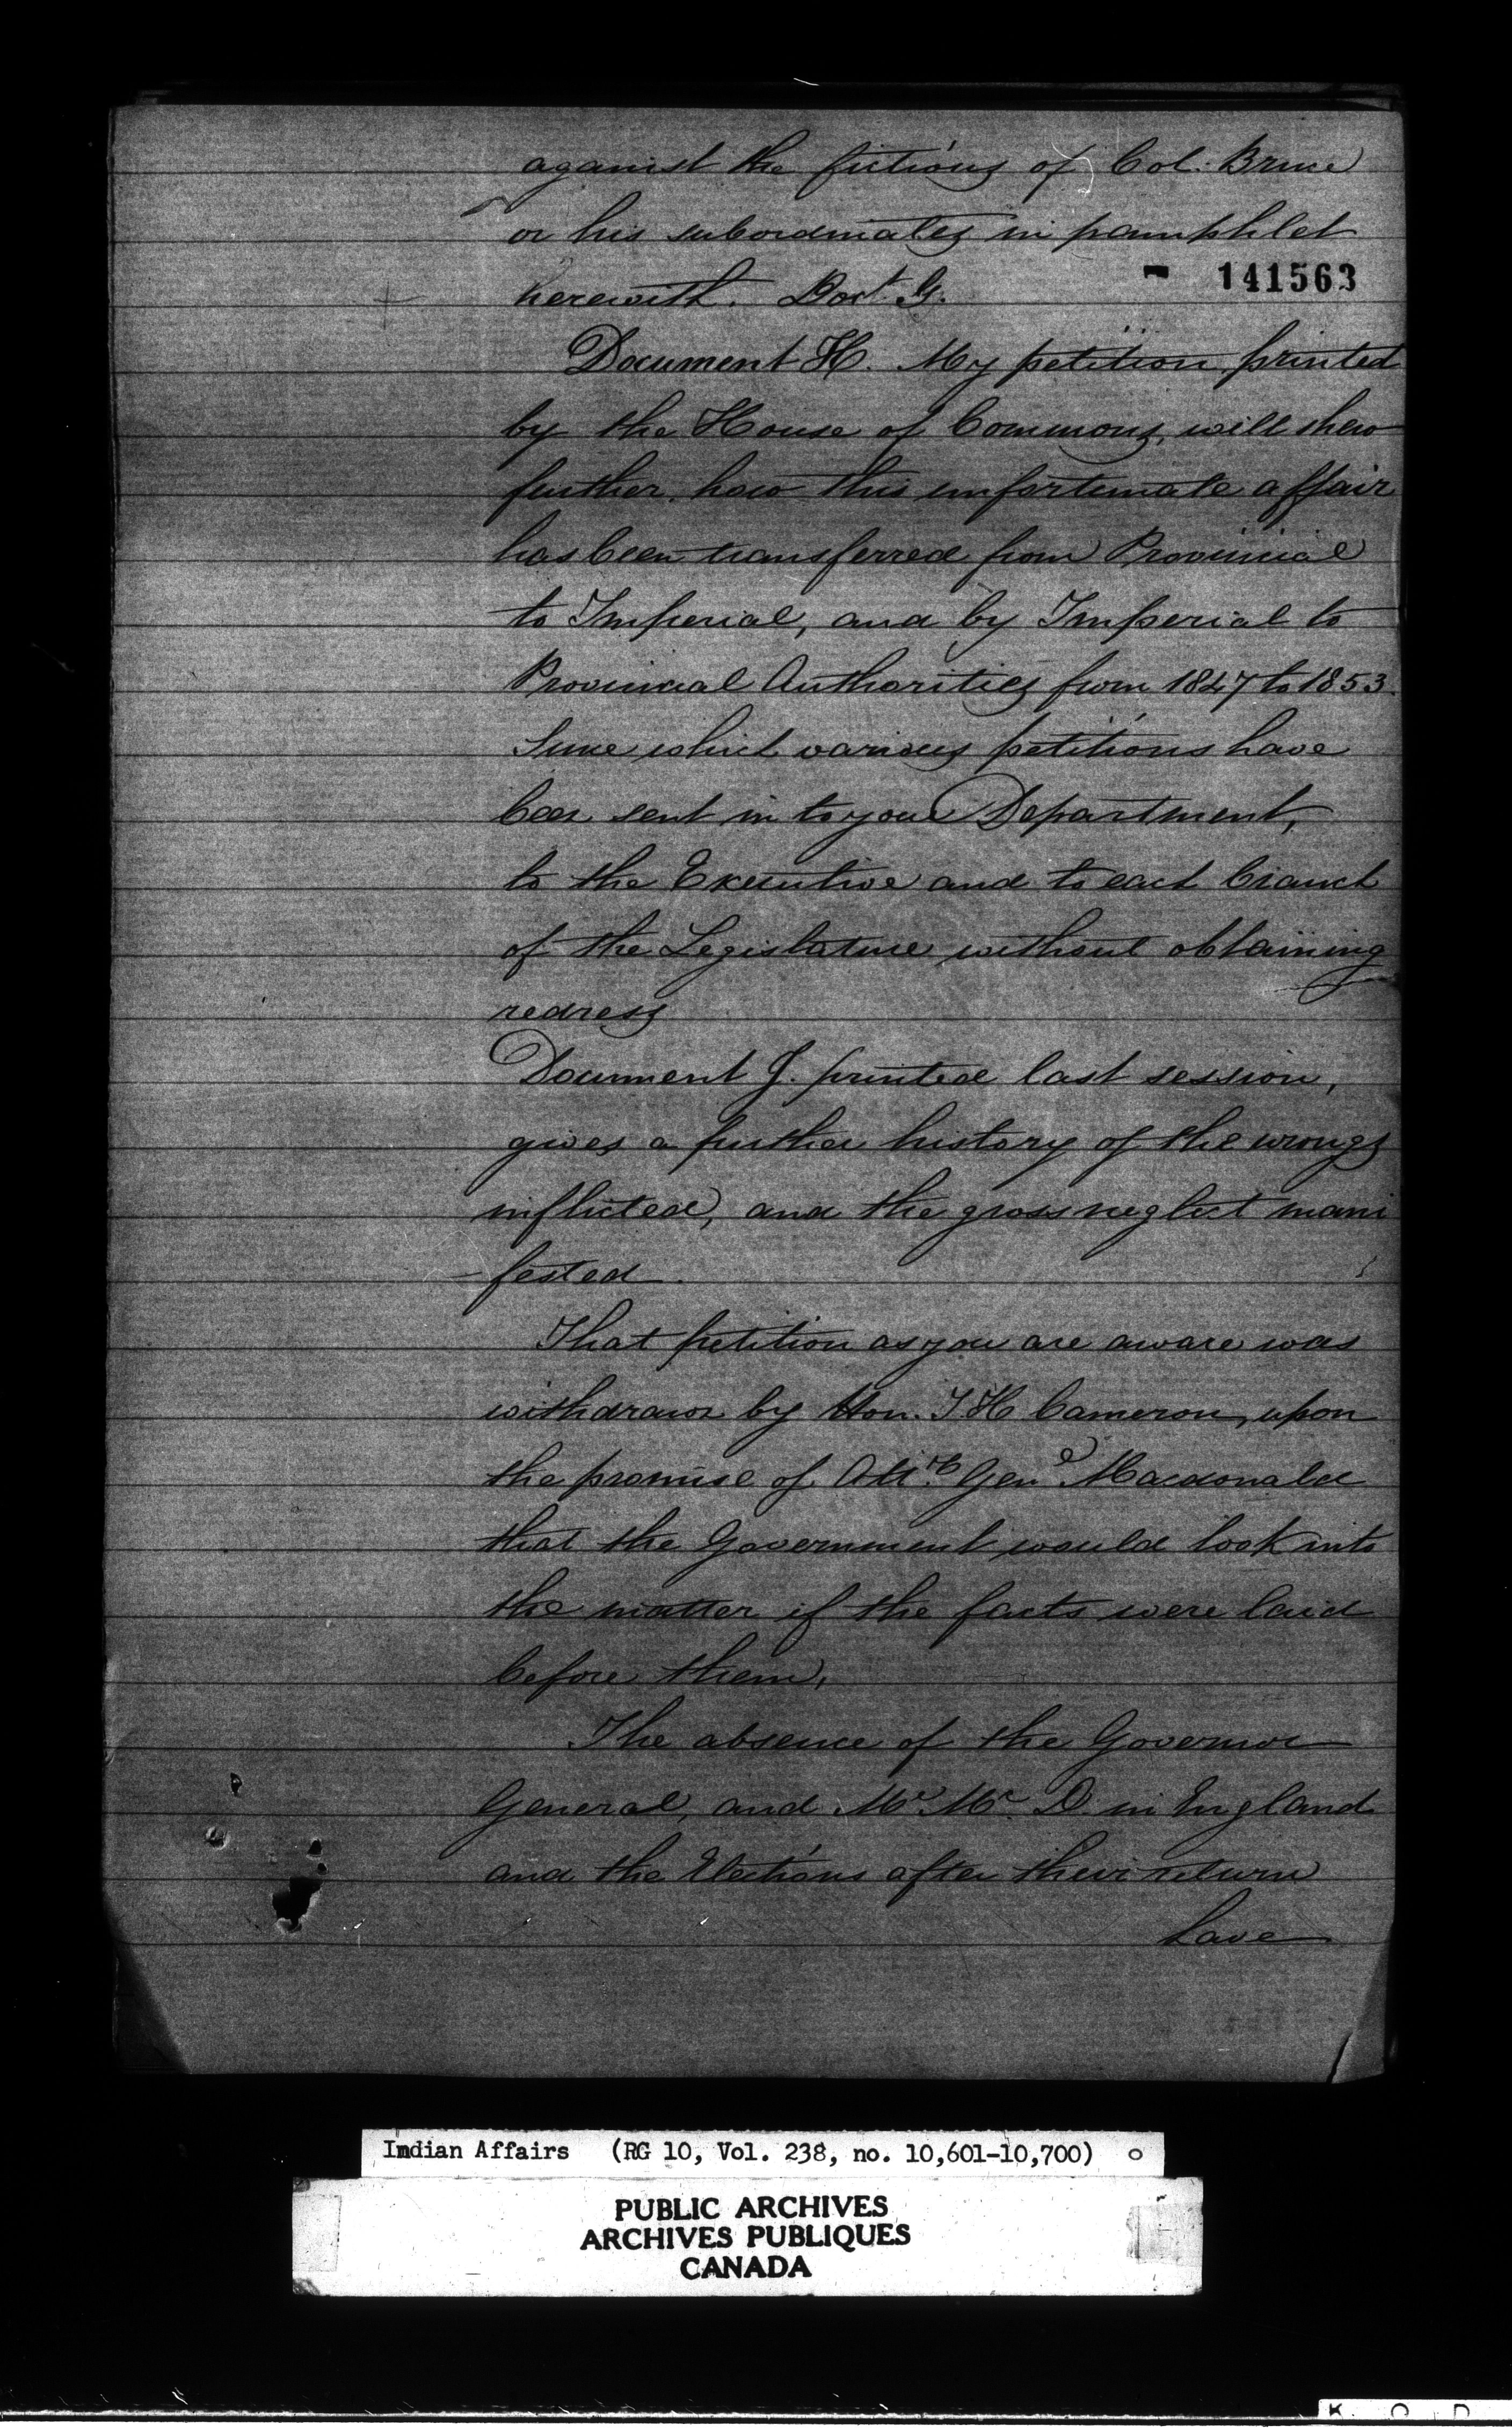 against the fictions of Col. Bruce
or his subordinates in pamphlet
- 141563
herewith. Doct. G.
Document H. My petition printed
by the House of Commons, will shew
further, how this unfortunate affair
has been transferred from Provincial
to Imperial, and by Imperial to
Provincial Authorities from 1847 to 1853.
Since which various petitions have
been sent in to your Department,
to the Executive and to each branch
of the Legislature without obtaining
redress
Document J. printed last session,
gives a further history of the wrongs
inflicted, and the gross neglect mani
-fested.
That petition as you are aware was
withdrawn by Hon. J. H Cameron, upon
the promise of Atty. Genl. Macdonald
that the Government would look into
the matter if the facts were laid
before them,
The absence of the Governor
General, and Mr. Mc. D. in England
and the Elections after their return
have
Indian Affairs (RG 10, Vol. 238, no. 10,601-10,700)
PUBLIC ARCHIVES
ARCHIVES PUBLIQUES
CANADA